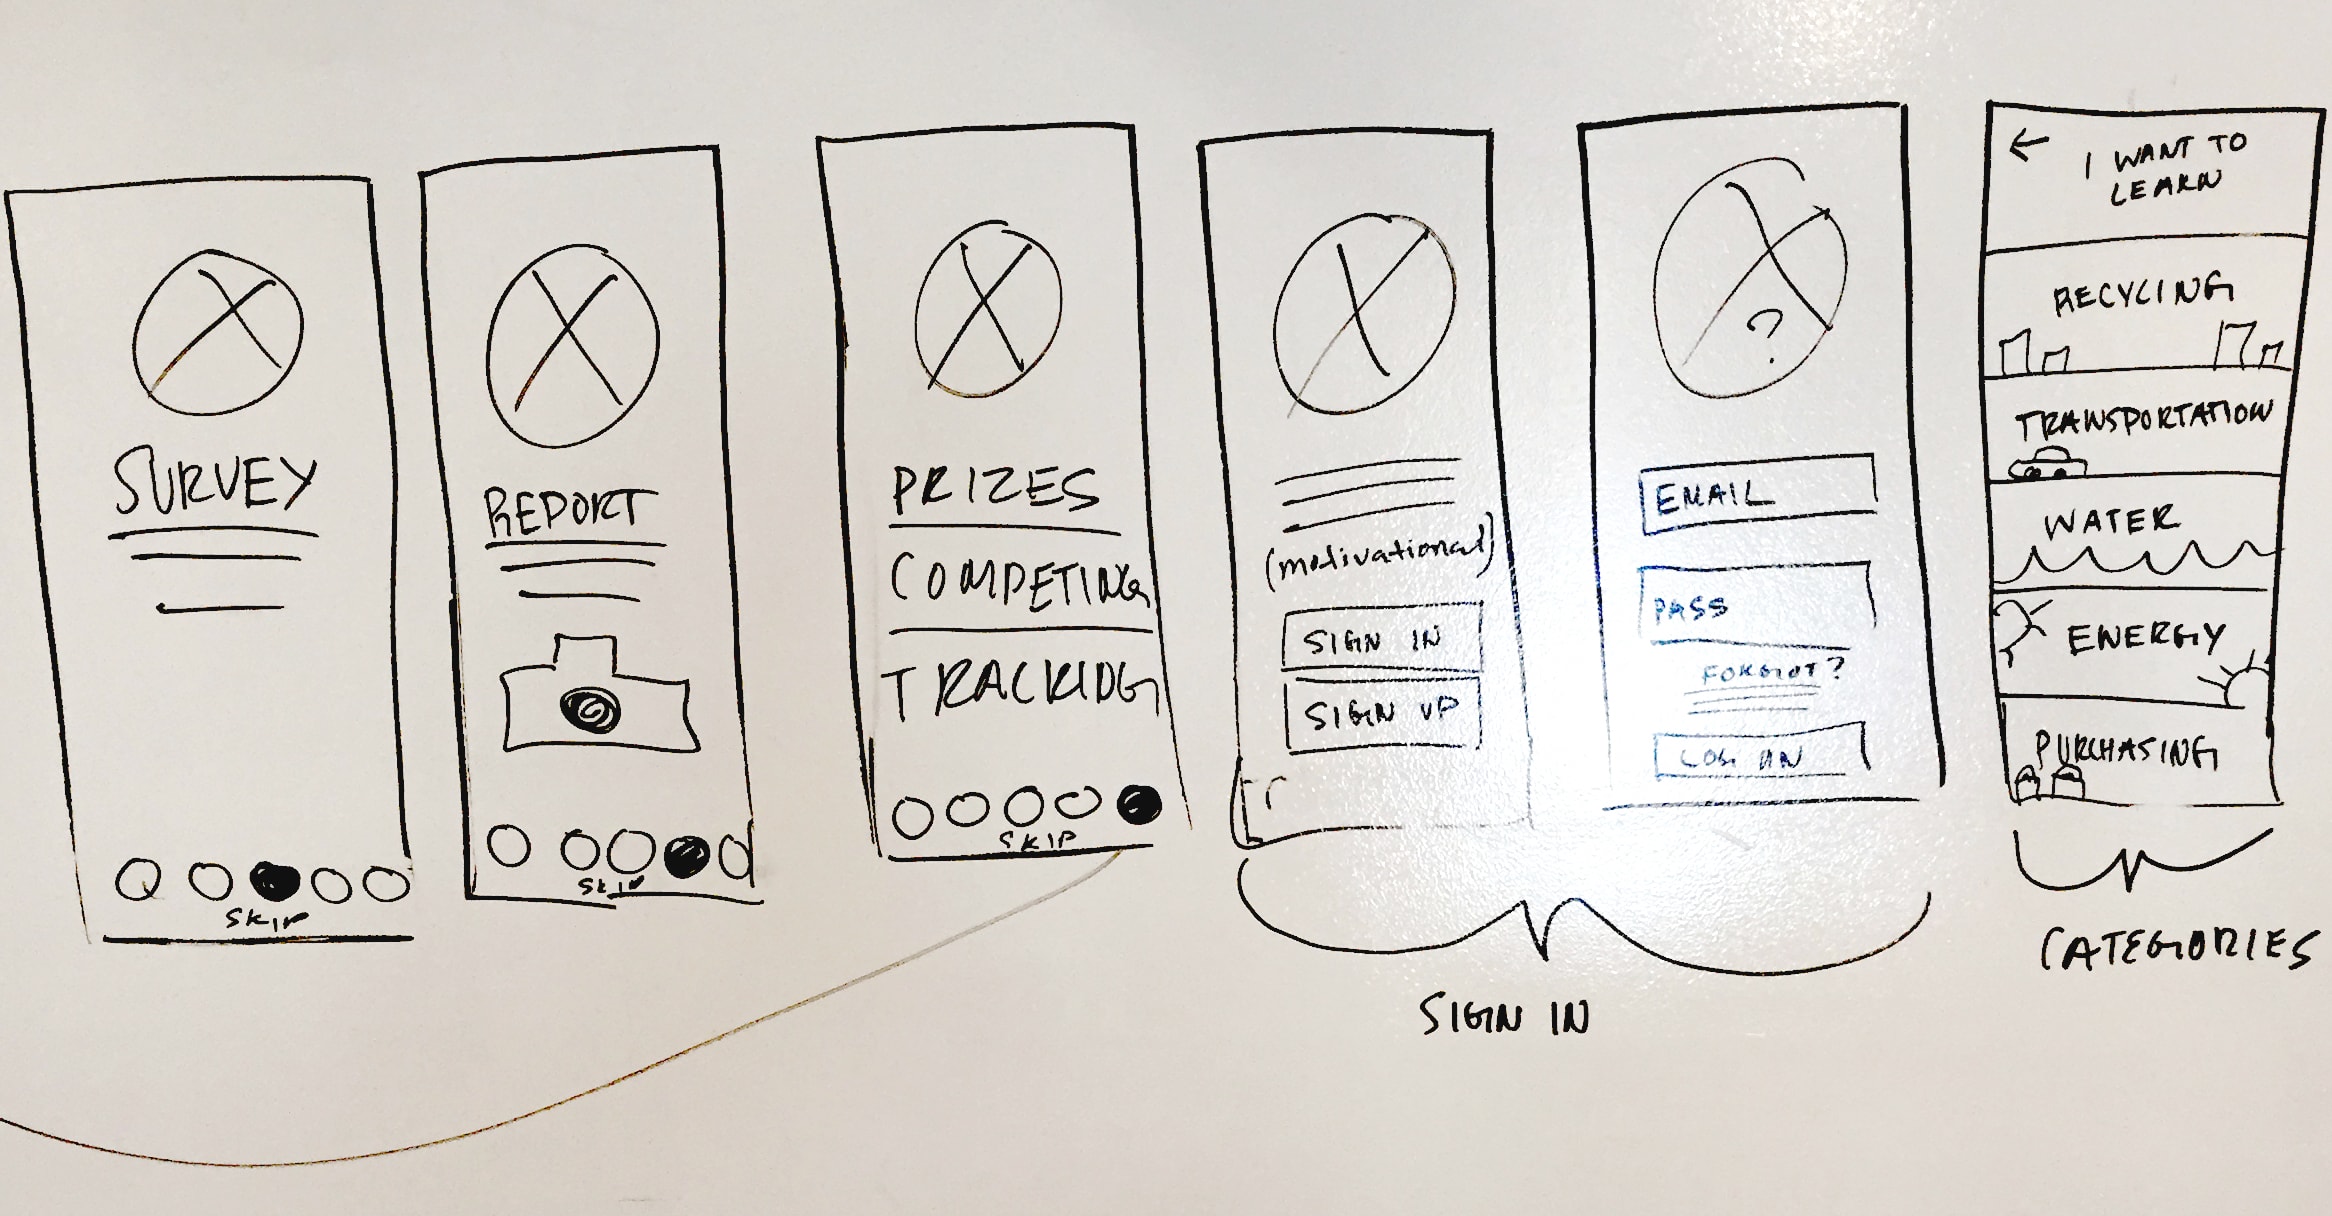 SURVEY
SKIP
REPORT
SKIP
PRIZES
COMPETING
TRACKING
SKIP
(motivational)
SIGN IN
SIGN UP
?
EMAIL
PASS
FORGOT?
LOG IN
SIGN IN
← I WANT TO
LEARN
RECYCLING
TRANSPORTATION
WATER
ENERGY
PURCHASING
CATEGORIES